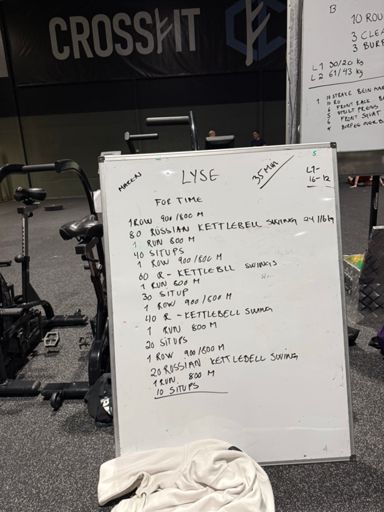 CROSSFIT
B
10 ROU
3 CLEA
3 BURP
L1 30/20 kg
L2 61/43 kg
FRONT RACK
FRONT SQUAT
MAREN
LYSE
35 MIN
5
L1-
16-12
FOR TIME
1 ROW 900/800 M
80 RUSSIAN KETTLEBELL SWING 24/16 kg
1 RUN 800 M
40 SITUPS
1 ROW 900/800 M
60 R- KETTLEBLL SWINGS
1 RUN 800 M
30 SITUP
1 ROW 900/800 M
40 R - KETTLEBELL SWING
1 RUN 800 M
20 SITUPS
1 ROW 900/800 M
20 RUSSIAN KETTLEBELL SWING
1 RUN 800 M
10 SITUPS